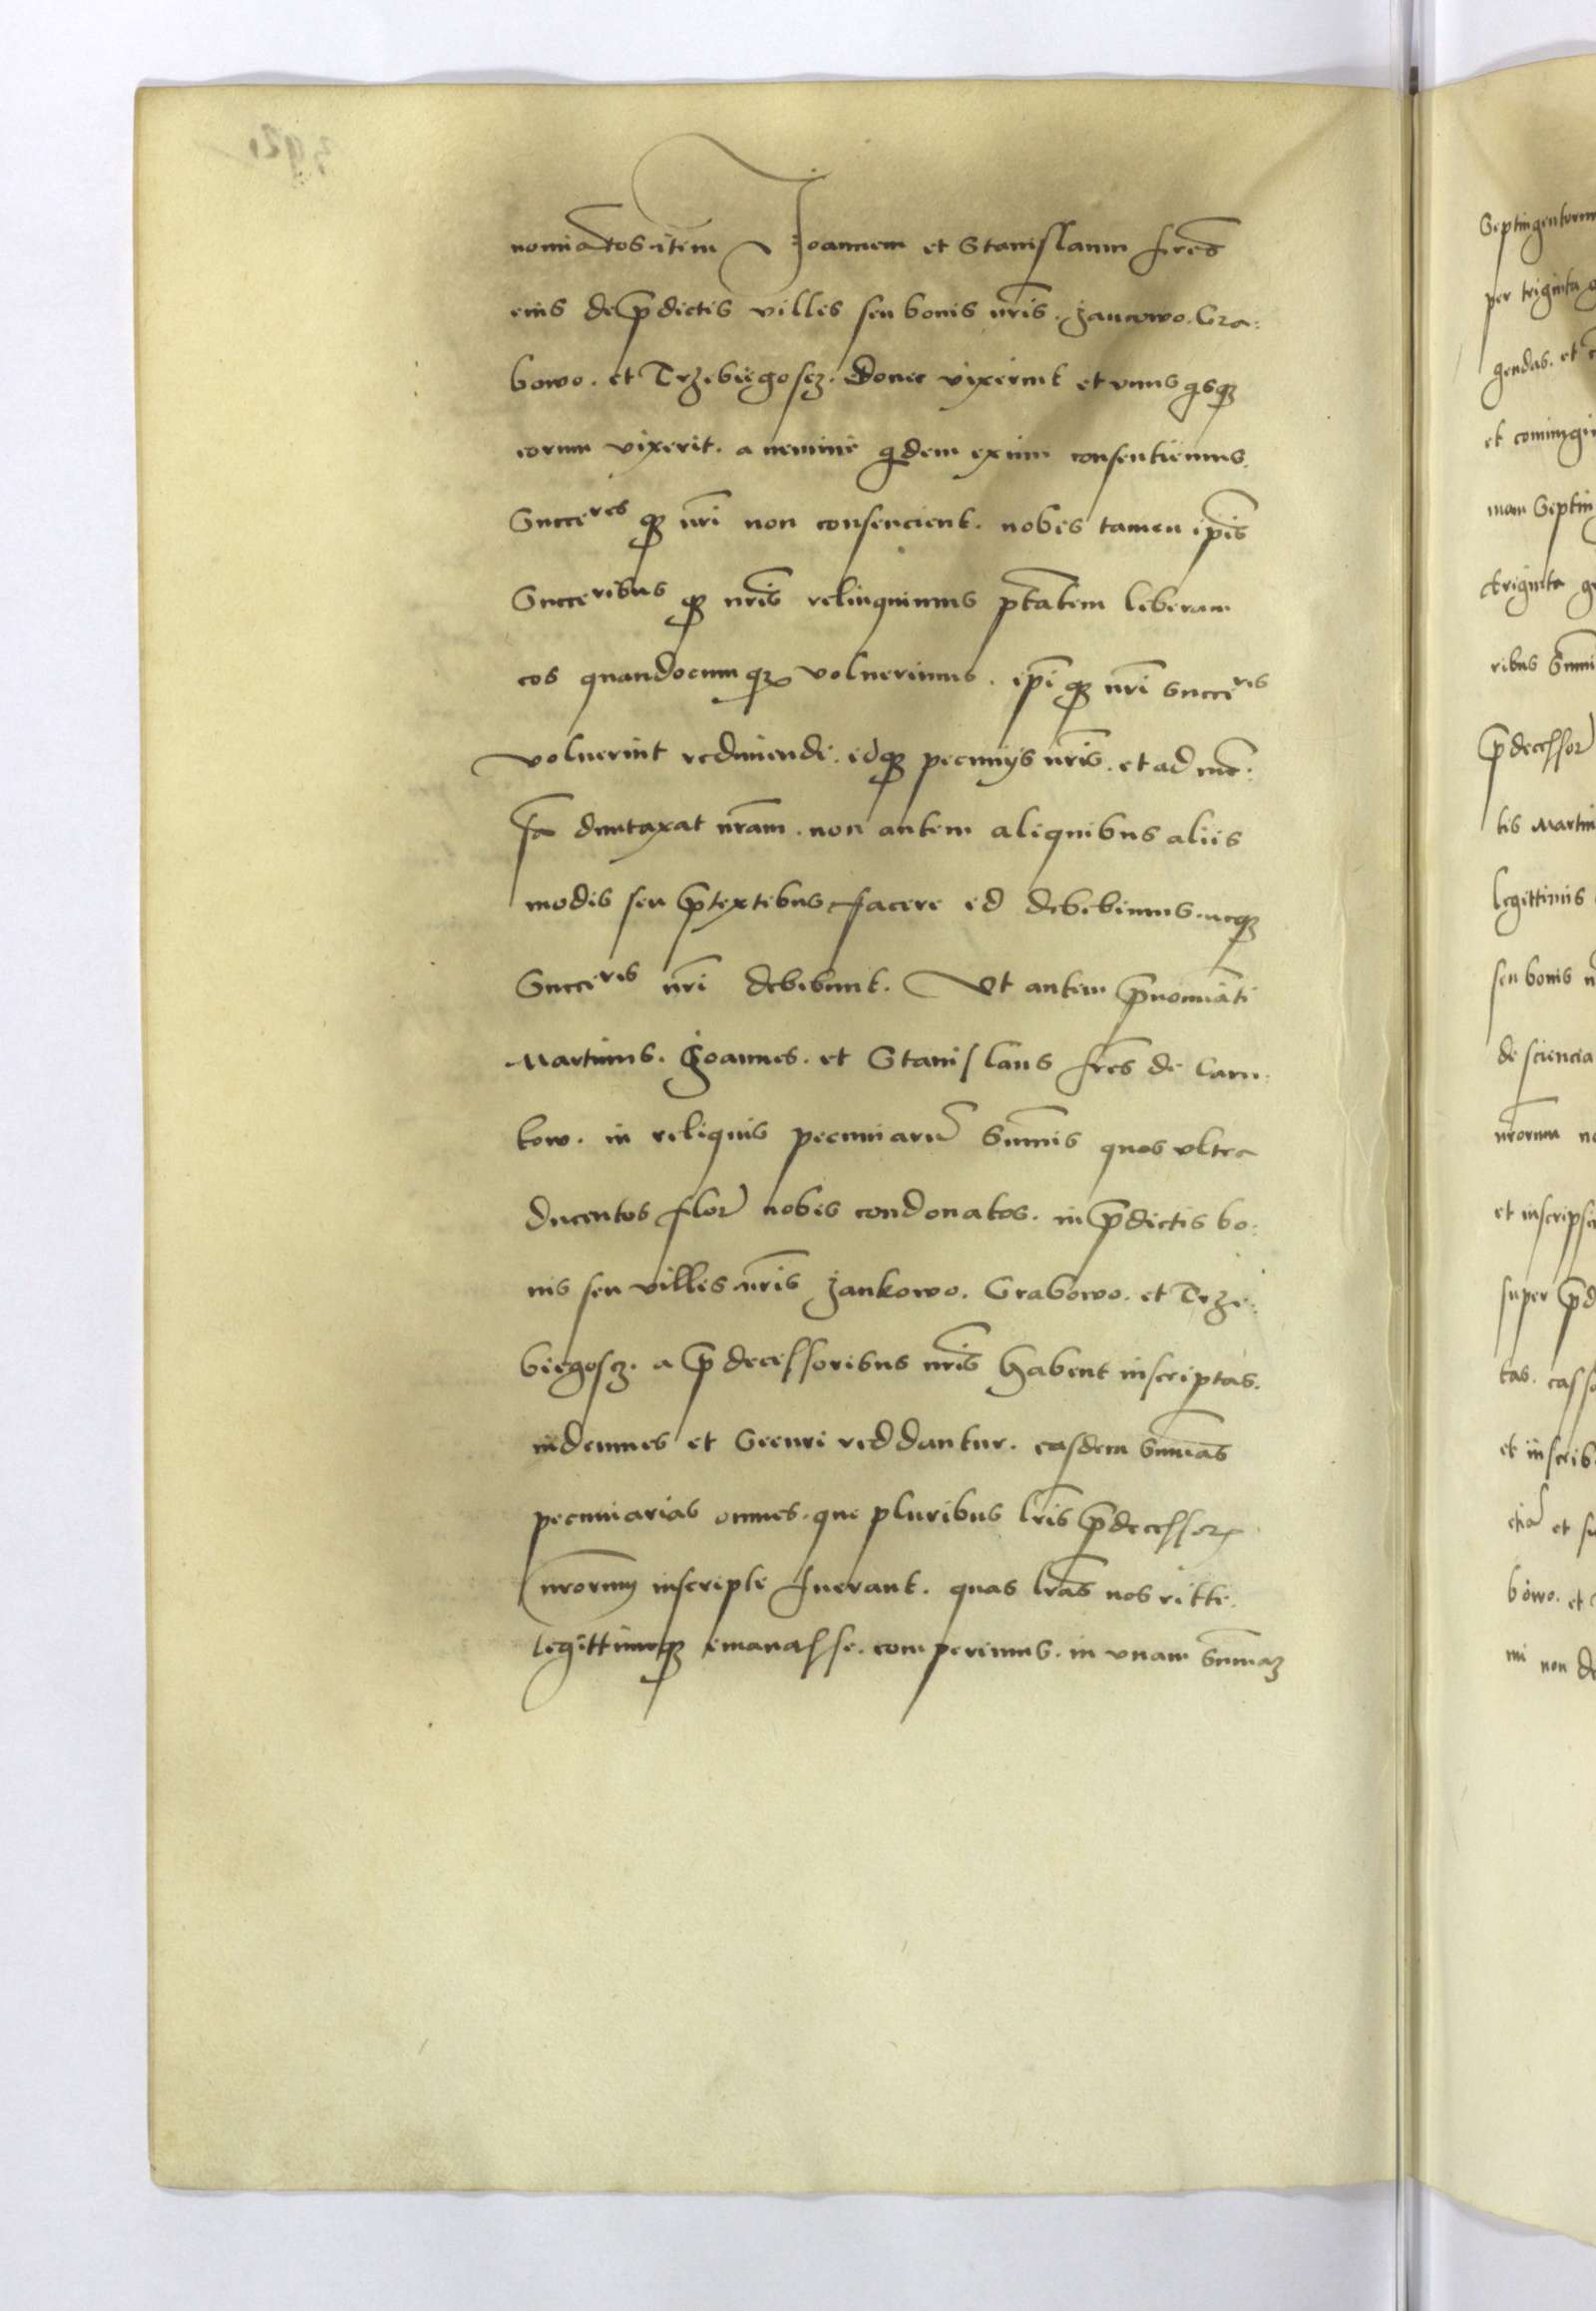 nomiatos item Joannem et Stanislaum fres
eius de p̄dictis villis seu bonis nr̄is. Jancowo. Gra:
bowo. et Trzebiegoscz. donec vixerint et unus qsq3
eorum vixerit. a nemine qdem eximi consentiemus.
Succeres q3 nr̄i non consencient. nobis tamen ip̄is
Succeribus q3 nr̄is relinquimus ptātem liberam
eos quandocumq3 voluerimus. ip̄i q3 nr̄i succeres
voluerint redimendi. idq3 pecuniis nr̄is. et ad me:
sā duntaxat nr̄am. non autem aliquibus aliis
modis seu p̄textibus facere id debebimus. neq3
Succeres nr̄i debebunt. Ut autem p̄nomiāti
Martinus. Joannes. et Stanislaus fres de Carn:
kow. in reliquis pecuniarū Sum̄is quas ultra
ducentos flor nobis condonatos. in p̄dictis bo:
nis seu villis nr̄is Jankowo. Grabowo. et Trze:
biegoscz. a p̄decessoribus nr̄is habent inscriptas.
indemnes et Securi reddantur. easdem Summas
pecuniarias omnes. que pluribus lr̄is p̄decessor
nr̄orum inscripte fuerant. quas lr̄as nos ritte.
legittimeq3 emanasse. comperimus. in unam Summa3
Septingentorum
per triginta
gendas. et
mam Septin
triginta
ribus Summi
p̄decessor
tis Martin
legittimis
seu bonis
de sciencia
nr̄orum
et inscripsi
super
tas. casso
et inscrib
bowo. et
mi non de